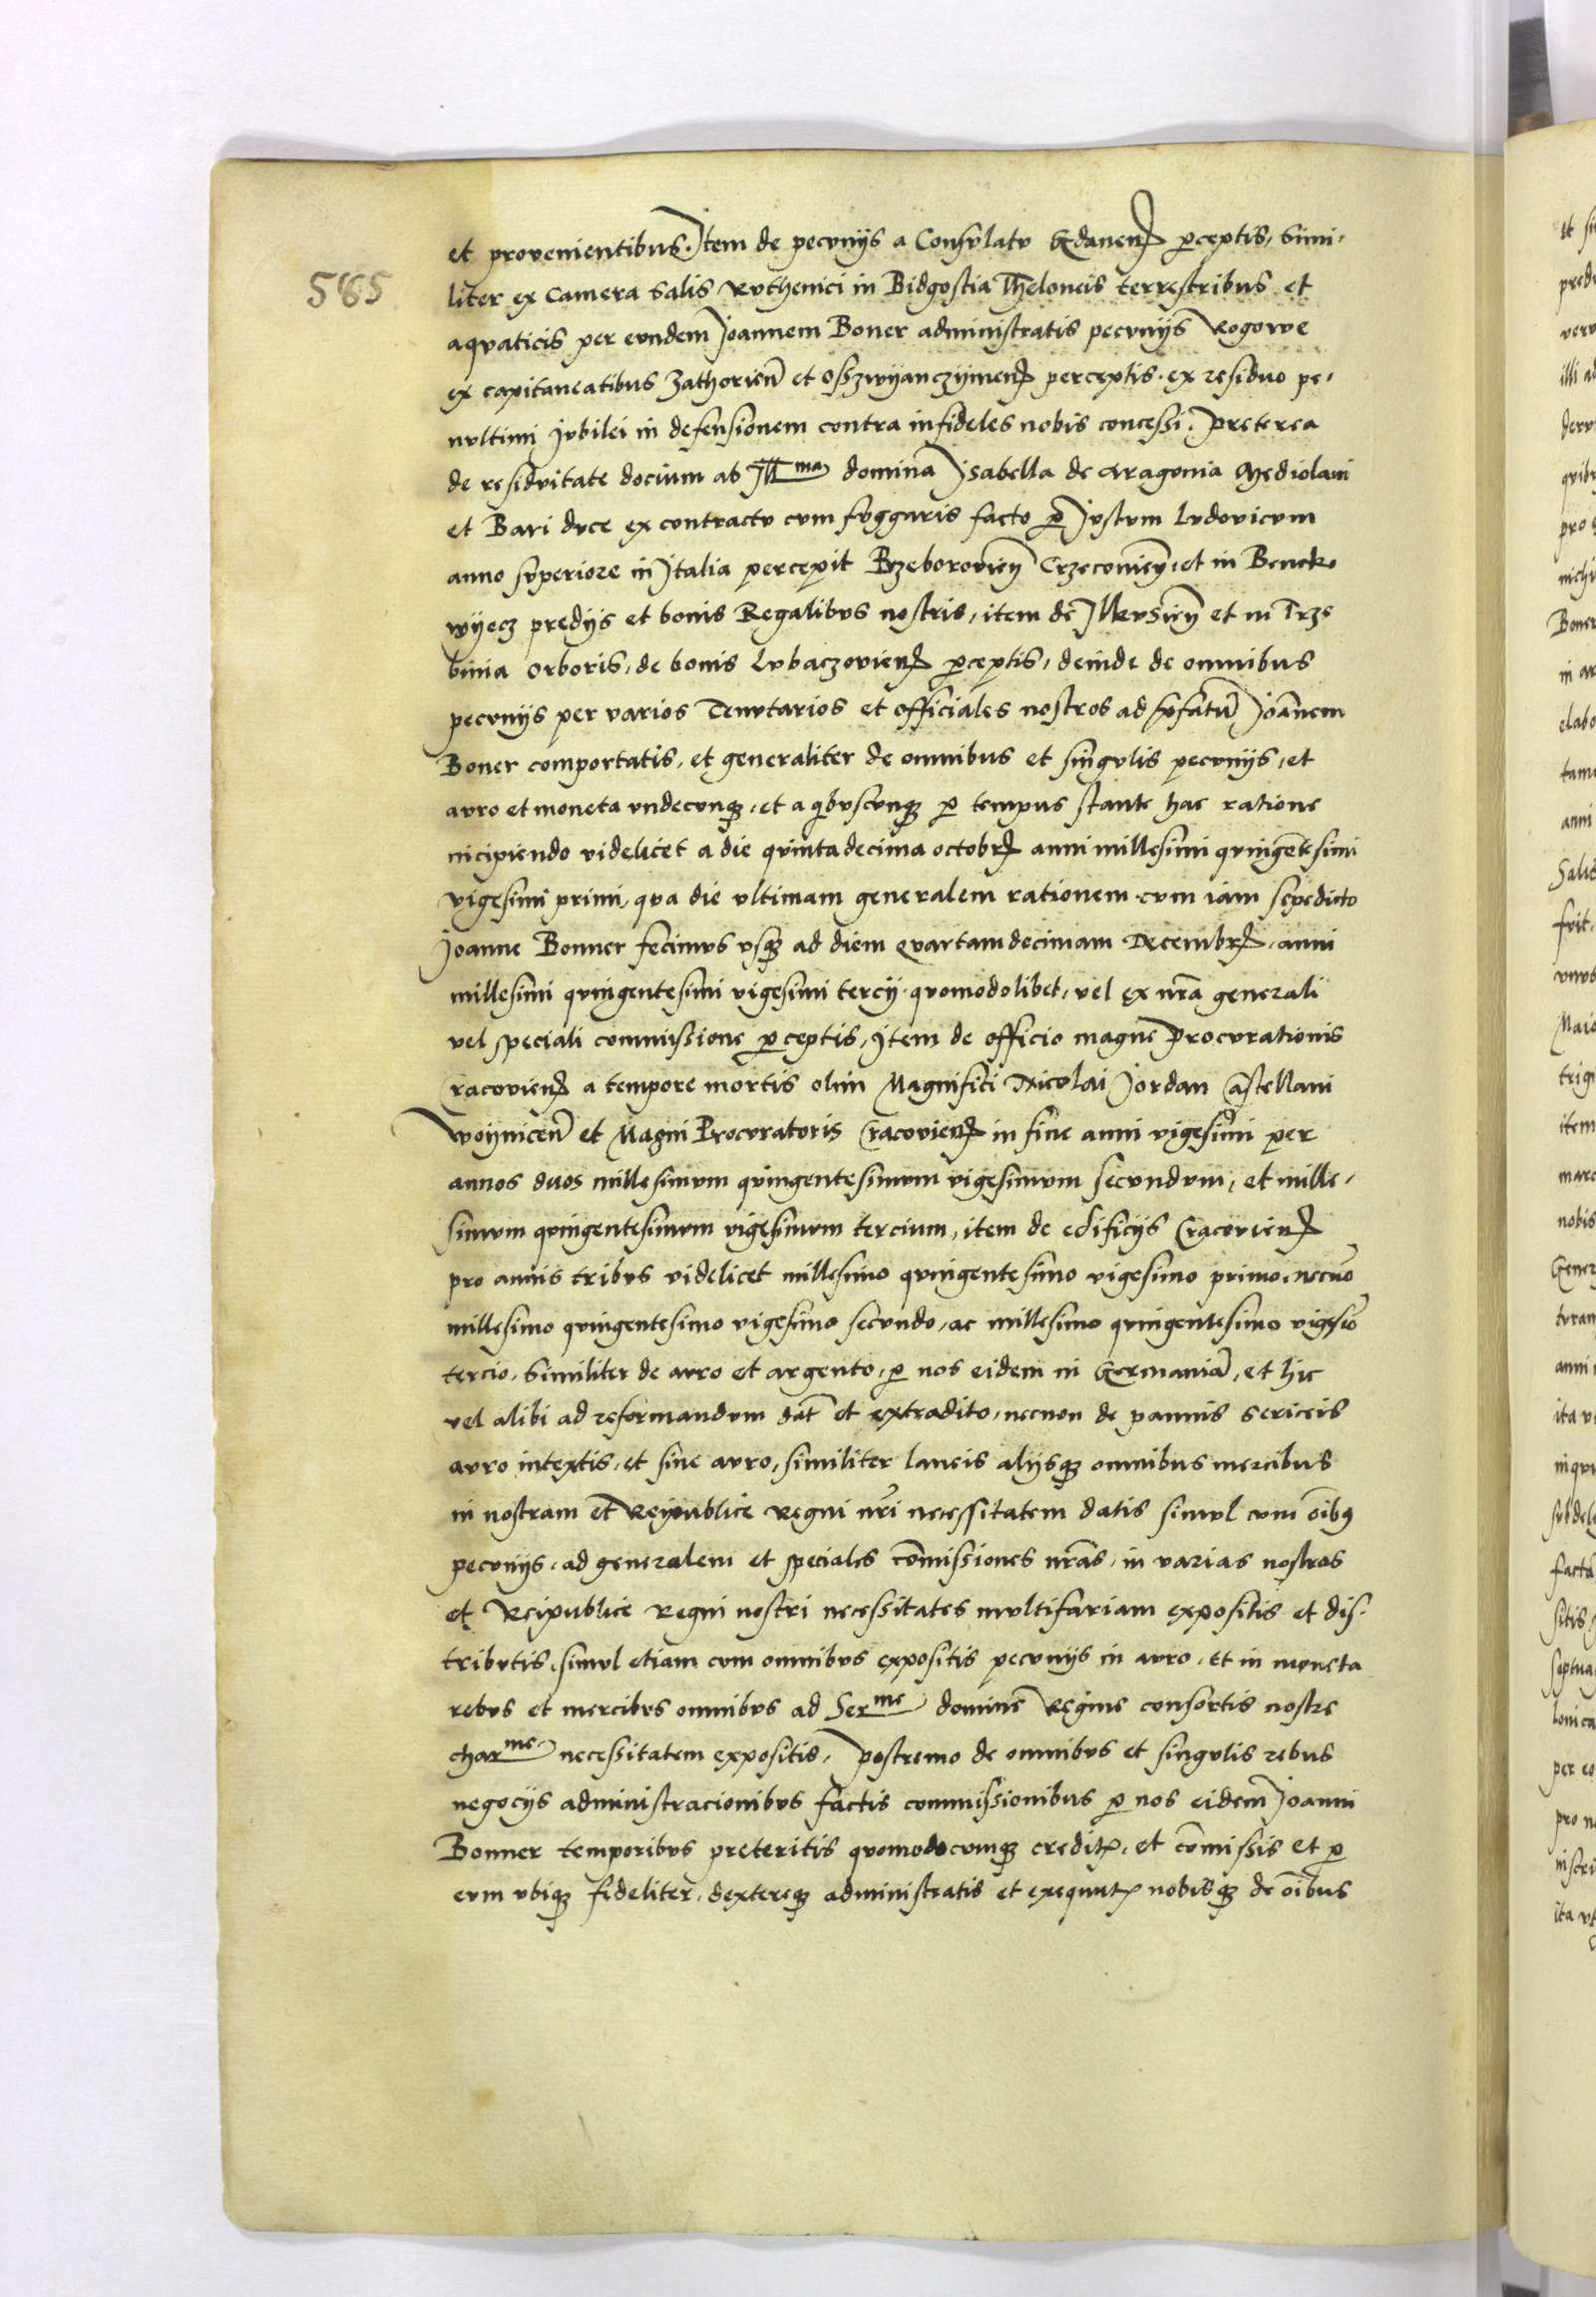 et provenientibus. Item de pecunijs a Consulatu Gedanen̄ ꝑceptis, Simi-
585
liter ex Camera Salis Ruthenici in Bidgostia Theloneis terrestribus et
aquaticis per eundem Joannem Boner administratis pecunijs Rogowe
ex capitaneatibus Zathorien̄ et Osszwyanczymen̄ perceptis. ex residuo pe-
nultimi Jubilei in defensionem contra infideles nobis concessi. Preterea
de residuitate docium ab Illma domina Isabella de Aragonia Mediolani
et Bari duce ex contractu cum fuggaris facto ꝑ Justum Ludovicum
anno superiore in Italia percepit Przeborovien̄ Crzeconien̄, et in Benek
wyecz predijs et bonis Regalibus nostris, item de Ilkusien̄ et in Trze
binia orboris, de bonis Lubaczovien̄ ꝑceptis, deinde de omnibus
pecunijs per varios Tenutarios et officiales nostros ad p̄fatū Joānem
Boner comportatis, et generaliter de omnibus et singulis pecunijs, et
auro et moneta undecunqꝫ, et a qibuscunqꝫ ꝑ tempus stante hac ratione
incipiendo videlicet a die quintadecima octobr̄ anni millesimi quingētesimi
vigesimi primi, qua die ultimam generalem rationem cum iam sepedicto
Joanne Bonner fecimus usqꝫ ad diem quartamdecimam Decembr̄, anni
millesimi quingentesimi vigesimi tercij. quomodolibet, vel ex nr̄a generali
vel speciali commissione ꝑceptis, Item de officio magne Procurationis
Cracovien̄ a tempore mortis olim Magnifici Nicolai Jordan Castellani
Woynicen̄ et Magni Procuratoris Cracovien̄ in fine anni vigesimi per
annos duos millesimum quingentesimum vigesimum secundum, et mille-
simum quingentesimum vigesimum tercium, item de edificijs Cracovien̄
pro annis tribus videlicet millesimo quingentesimo vigesimo primo, necnō
millesimo quingentesimo vigesimo secundo, ac millesimo quingentesimo vigesīo
tercio, Similiter de auro et argento, ꝑ nos eidem in Germaniā, et hic
vel alibi ad reformandum dat̄ et extradito, necnon de pannis sericeis
auro intextis, et sine auro, similiter laneis alijsqꝫ omnibus mercibus
in nostram et Reipublice Regni nr̄i necessitatem datis simul cum oībꝰ
pecunijs, ad generalem et speciales cōmissiones nr̄as, in varias nostras
et Reipublice Regni nostri necessitates multifariam expositis et dis-
tributis, simul etiam cum omnibus expositis pecunijs in auro, et in moneta
rebus et mercibus omnibus ad Serme domine Regine consortis nostre
charme necessitatem expositis, Postremo de omnibus et singulis rebus
negocijs administracionibus factis commissionibus ꝑ nos eidem Joanni
Bonner temporibus preteritis quomodocunqꝫ credit, et cōmissis et ꝑ
eum ubiqꝫ fideliter, dextereqꝫ administratis et exequut nobisqꝫ de oībus